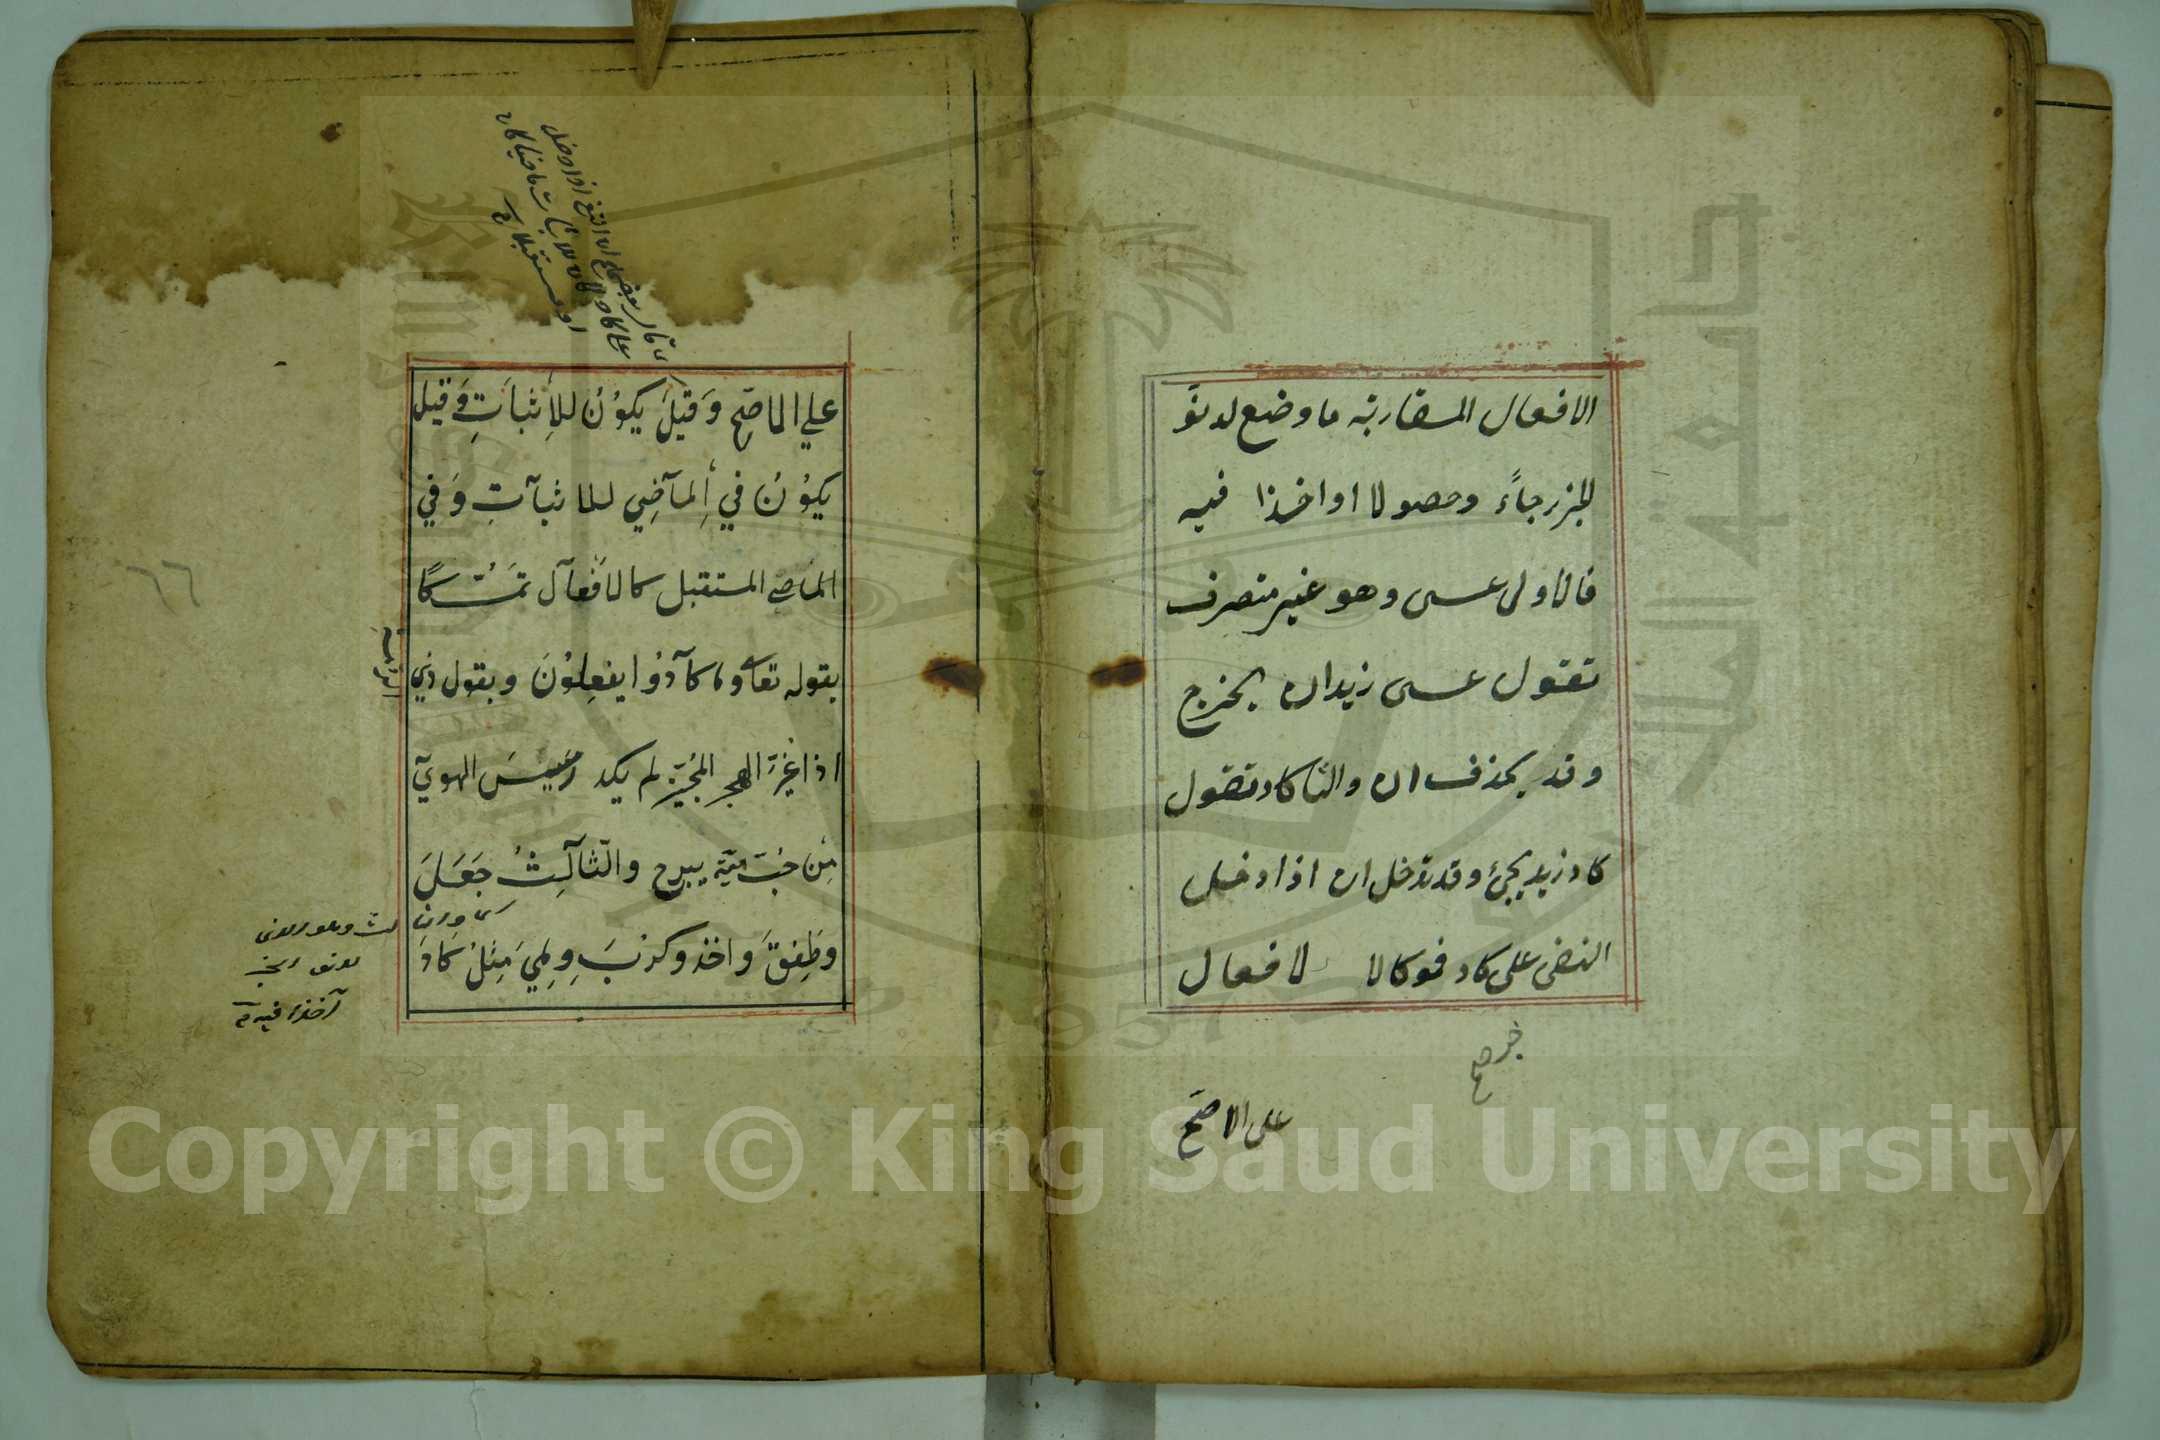 الافعال المقاربة ما وضع لدنو
الخبر رجاءً وحصولا او اخذا فيه
فالاولى عسى وهو غير متصرف
تقول عسى زيد ان يخرج
وقد يحذف ان والثا كاد تقول
كاد زيد يجئ وقد تدخل ان اذا دخل
النفى على كاد فهو كالا لافعال
على الاصح
علي الاصَحِّ وَقيلَ يَكوُنُ للِأِثباَتِ وَقيل
يَكوُنُ في اَلمآضِي للاثبآتِ وَفي
الماضي المستقبل كالافَعآل تمَسُّكاً
بقوله تعالى وما كآدُوا يفعلوُنَ وبقول ذي
الرمة
اذا غيَّرَ الهجر المحُبّين لم يكد رسَيسَ الهويَ
مِنْ حُبّ مَيّة يبرح والثّالِثُ جَعَلَ
وطَفِقَ واخذ وكرَبَ وهِيَ مِثلُ كادَ
آخذا فيه
Copyright © King Saud University
1957